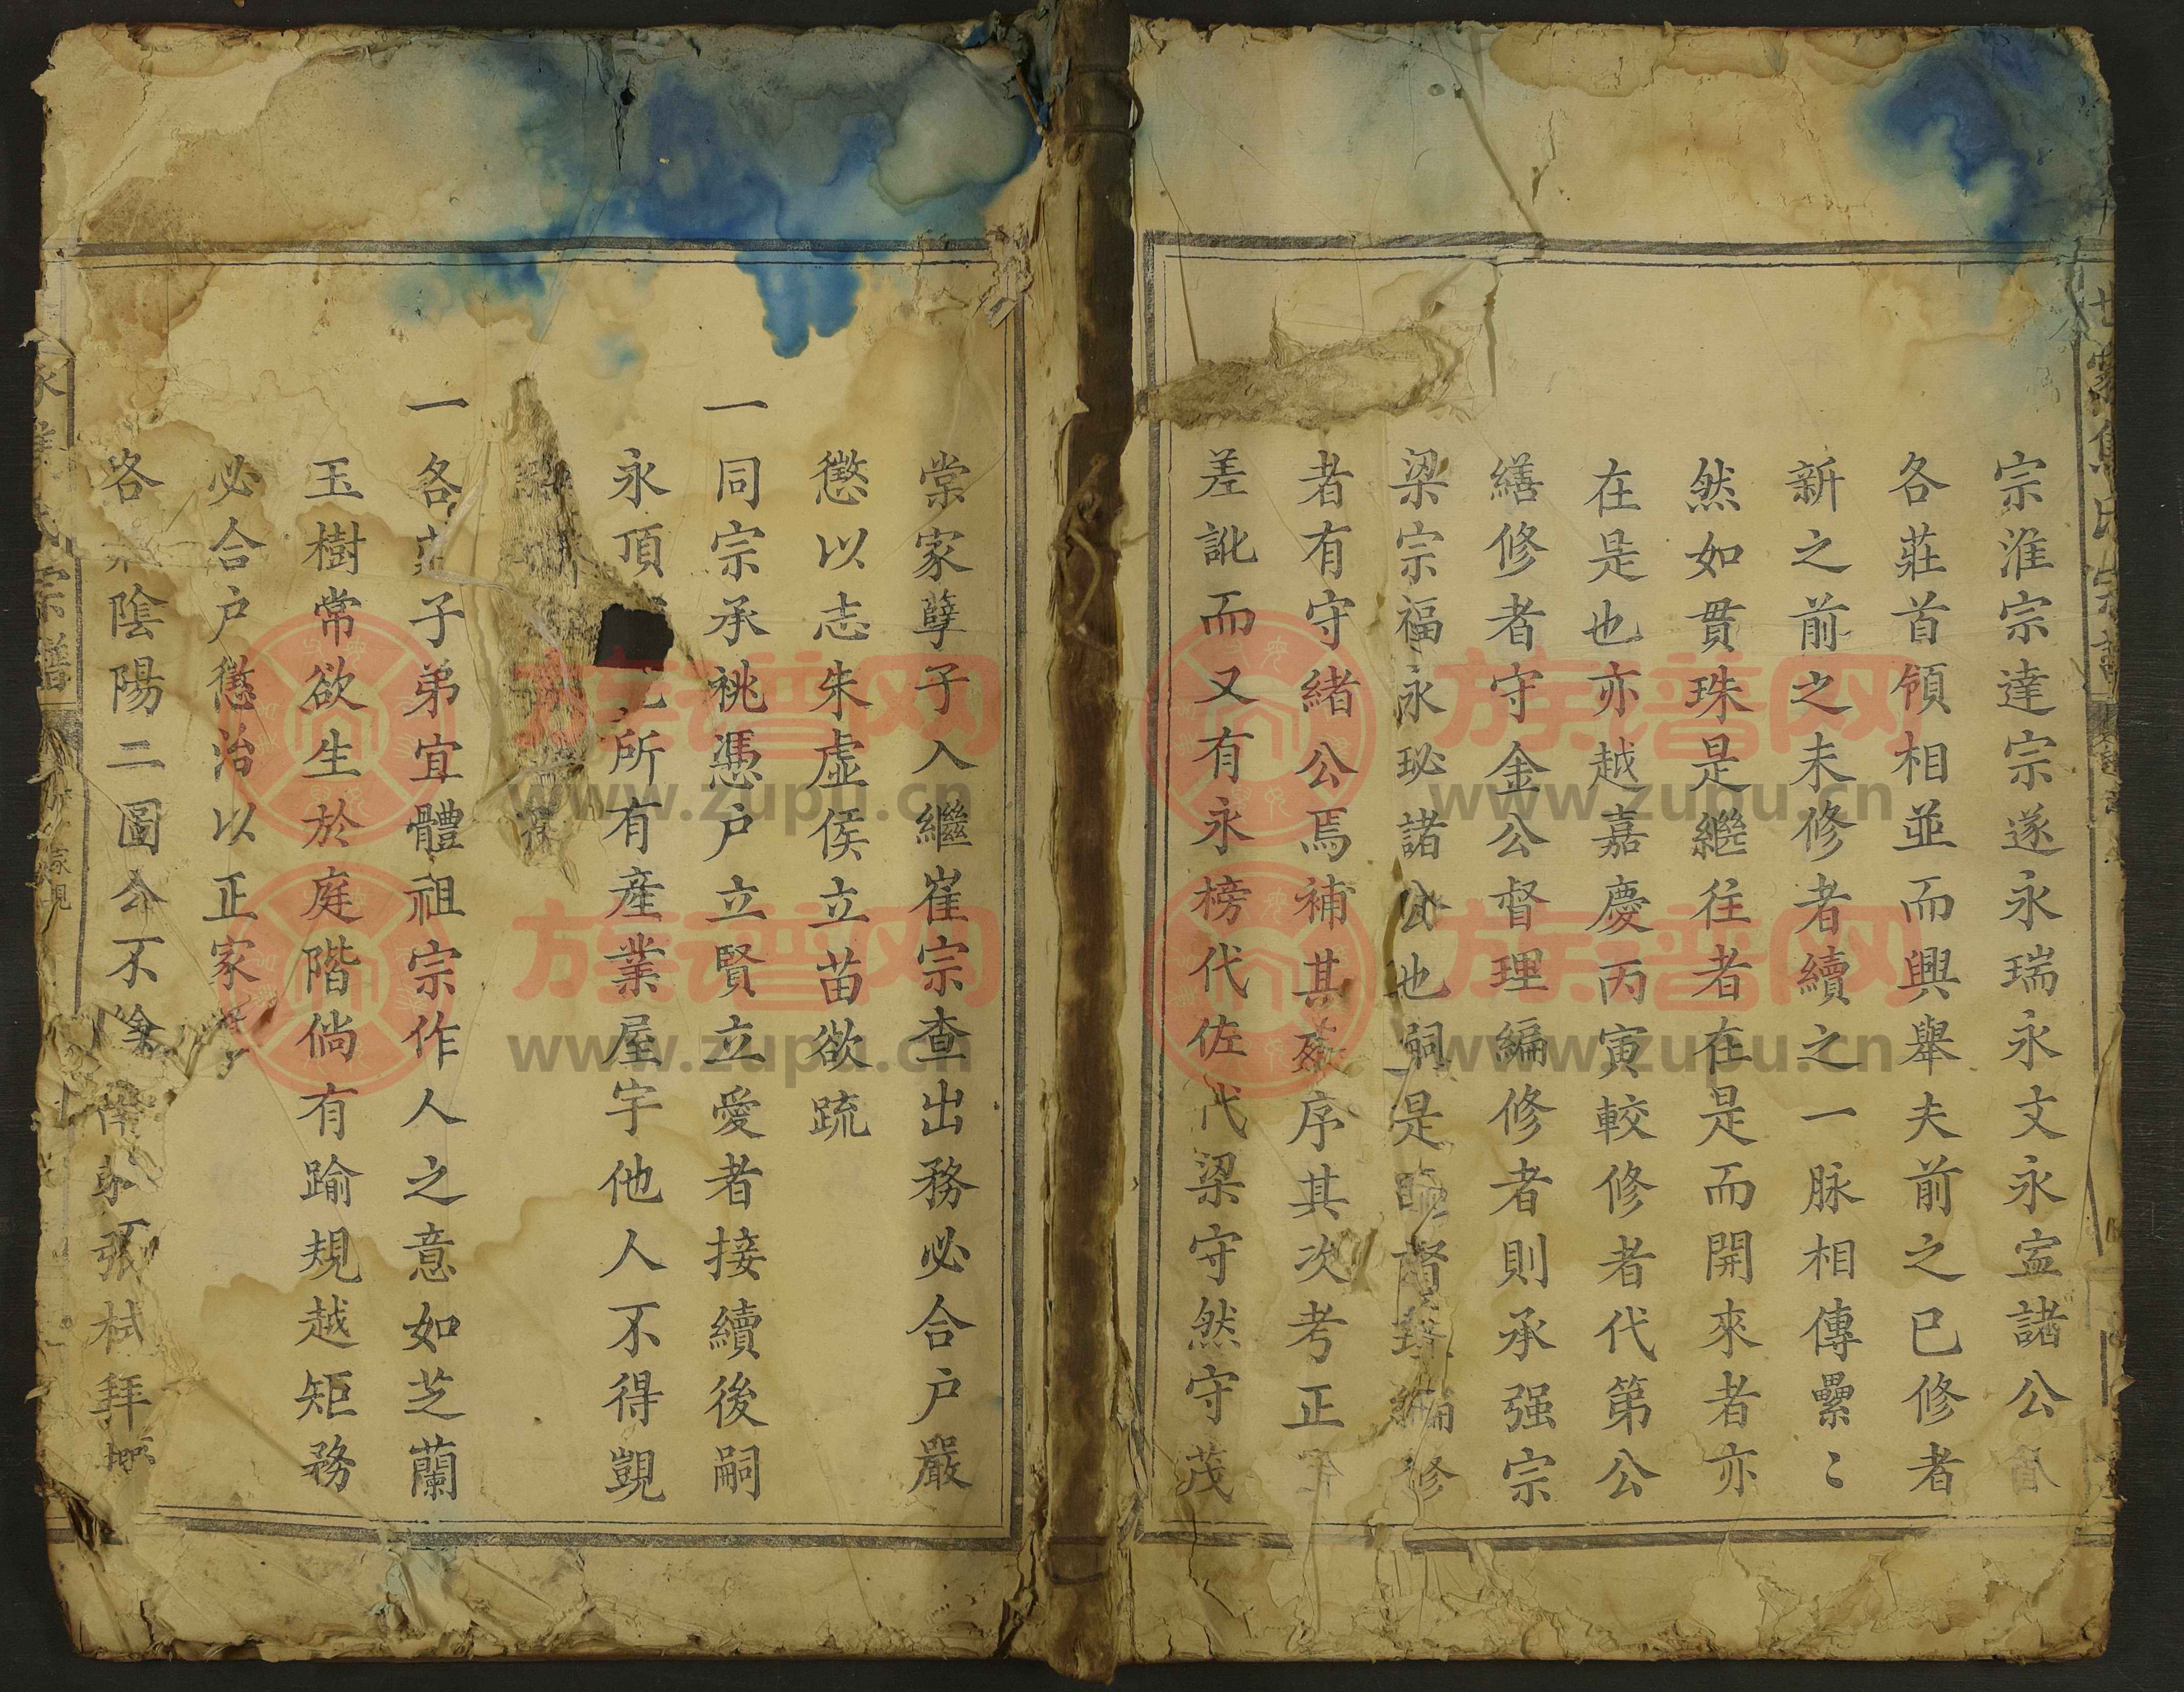 宗淮宗達宗遂永瑞永文永寍諸公皆
各莊首領相並而興舉夫前之已修者
新之前之未修者續之一脉相傳纍〻
然如貫珠是繼往者在是而開來者亦
在是也亦越嘉慶丙寅較修者代第公
繕修者守金公督理編修者則承强宗
梁宗福永珌諸公也嗣是 編修
者有守緒公焉補其 序其次考正
差訛而又有永榜代佐代梁守然守茂
棠家孽子入繼崔宗查出務必合户嚴
懲以志朱虛侯立苗欲疏
一同宗承祧憑户立賢立愛者接續後嗣
永頂 所有産業屋宇他人不得覬
一各莊子弟宜體祖宗作人之意如芝蘭
玉樹常欲生於庭階倘有踰規越矩務
必合户懲治以正家
各 陰陽二圖公不 張栻拜
宗譜
族譜网
www.zupu.cn
族譜网
www.zupu.cn
族譜网
www.zupu.cn
族譜网
www.zupu.cn